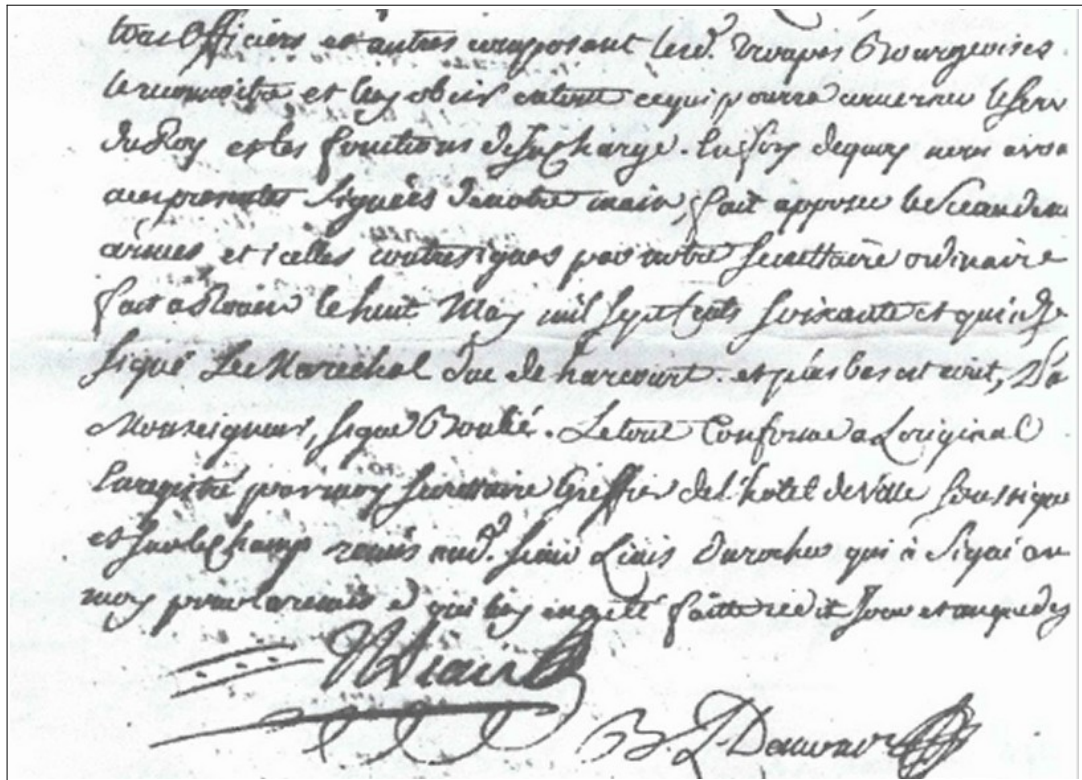 Officiers et autres composant lesd. Troupes Bourgeoises
le reconnoitre et luy obeir en tout ce qui pourra concerner le serv
du Roy et les fonctions de sa Charge. En foy dequoy nous avon
aux presentes signées de notre main, fait apposer le Sceau de nos
armes et icelles contresigner par notre secrettaire ordinaire
fait a Rouen le huit May mil sept cents soixante et quinze
signé Le Marechal duc de harcourt. et plus bas est ecrit, Par
Monseigneur, signé. Le tout Conforme a Loriginal
Enregistré par moy secrettaire Greffier de l'hotel de Ville soussigné
et sur le champ remis aud. sieur Liais Durocher qui à signé avec
moy pour la remise qui luy en a eté faitte led it Jour et an que des
Liais